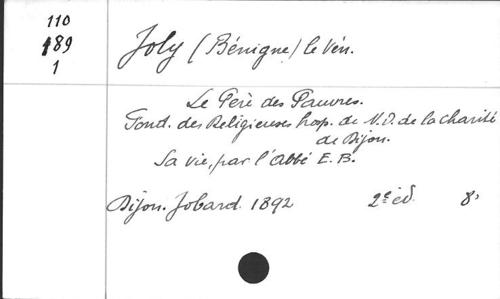 110
189
1
Joly (Bénigne) le Vén.
Le Père des Pauvres.
Fond. des Religieuses hosp. de N.D. de la charité
de Dijon.
Sa vie, par l'abbé E. B.
Dijon. Jobard. 1892 2e éd. 8°